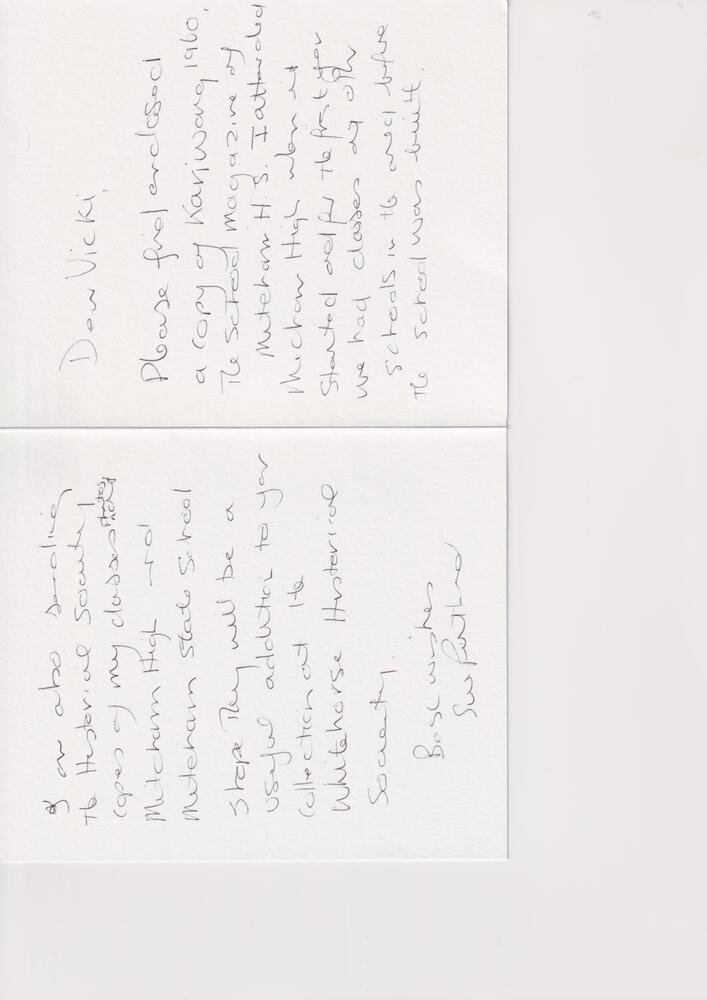 Dear Vicki,
Please find enclosed
a copy of Kariwara 1960,
The School magazine of
Mitcham H.S. I attended
Mitcham High when it
started and for the first year
we had classes at other
schools in the area before
the school was built.
I am also sending
the Historical Society
copies of my classes photos
Mitcham High and
Mitcham State School
I hope They will be a
useful addition to your
collection at the
Whitehorse Historical
Society.
Best wishes
Sue